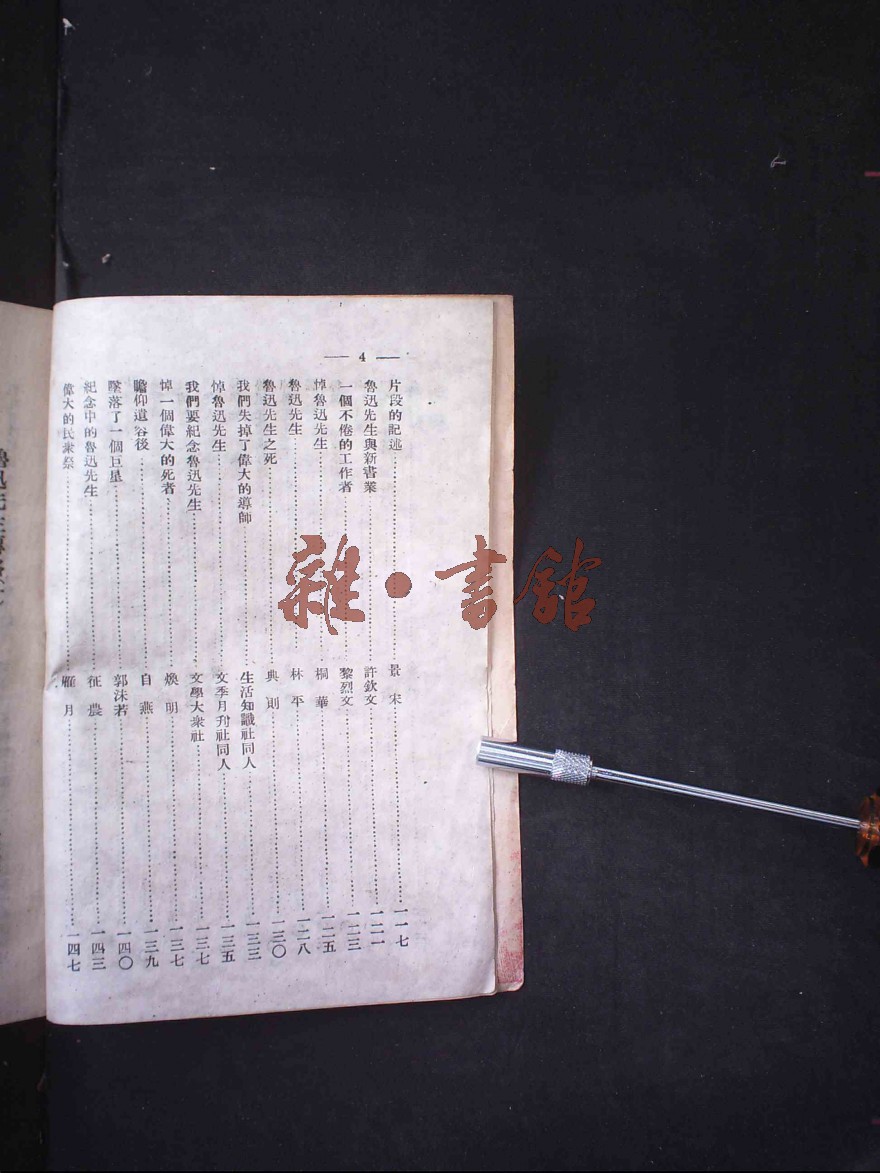 — 4 —
片段的記述……景 宋……一一七
魯迅先生與新書業……許欽文……一二一
一個不倦的工作者……黎烈文……一二三
悼魯迅先生……桐 華……一二五
魯迅先生……林 平……一二八
魯迅先生之死……典 則……一三〇
我們失掉了偉大的導師……生活知識社同人……一三三
悼魯迅先生……文季月刊社同人……一三五
我們要紀念魯迅先生……文學大衆社……一三七
悼一個偉大的死者……煥 明……一三七
瞻仰遺容後……自 燕……一三九
墜落了一個巨星……郭沫若……一四〇
紀念中的魯迅先生……征 農……一四三
偉大的民衆祭……雁 月……一四七
雜·書館